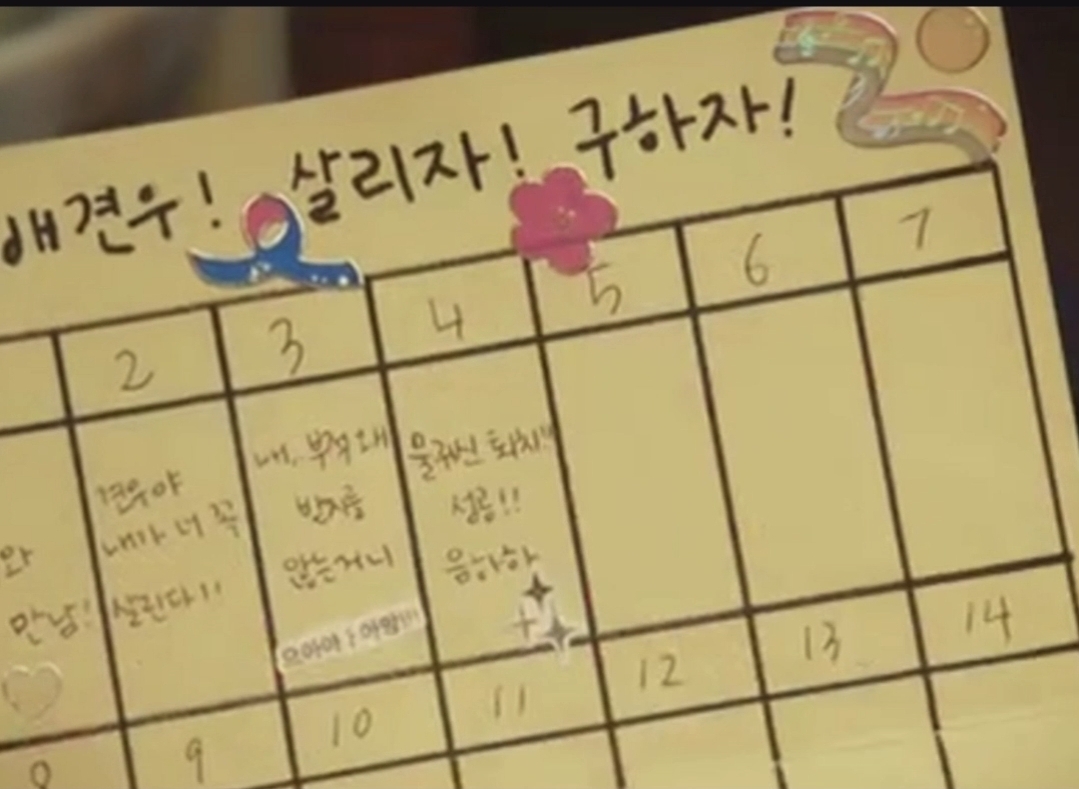 배견우! 살리자! 구하자!
2 3 4 5 6 7
와
만남!
견우야
내가 너 꼭
살린다!!
내, 부적 왜
받지를
않는거니
으아아ㅏ아앙!!!
물귀신 퇴치!!
성공!!
음하하
8 9 10 11 12 13 14